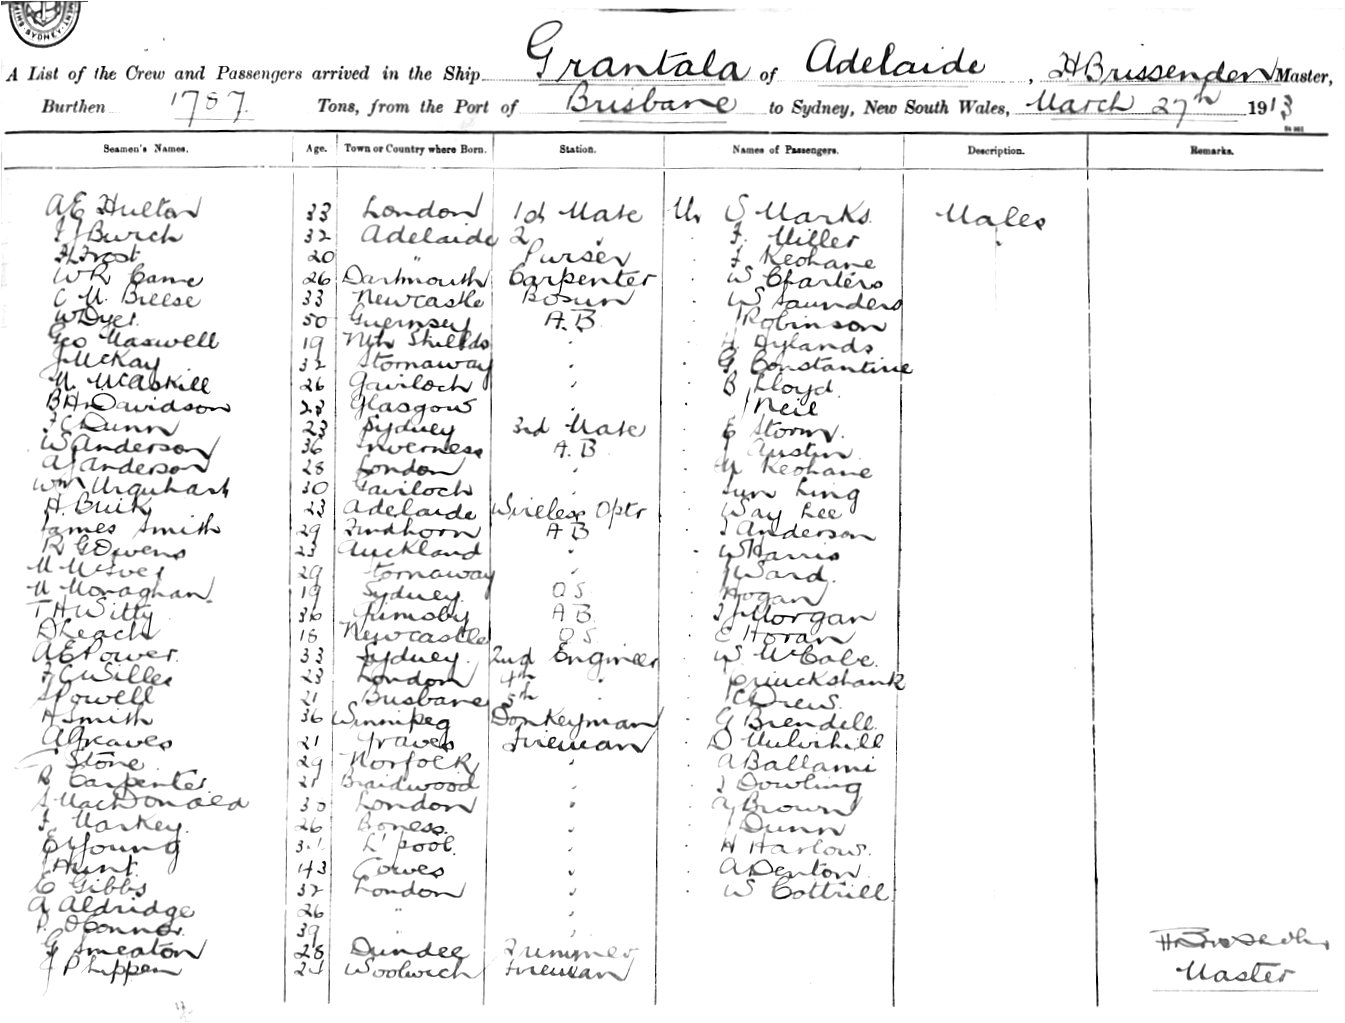 A List of the Crew and Passengers arrived in the Ship Grantala of Adelaide, H Brissenden Master,
Burthen 1787 Tons, from the Port of Brisbane to Sydney, New South Wales, March 27th 1913
Seamen's Names. Age. Town or Country where Born. Station. Names of Passengers. Description. Remarks.
A E Hulton 33 London 1st Mate Mr S Marks Males
Burch 32 Adelaide 2 " F. Miller
H Frost 20 " Purser F Keohane
W R Came 26 Dartmouth Carpenter W Charters
C M Breese 33 Newcastle Bosun W Saunders
W Dyer 50 Guernsey A.B J Robinson
Geo Maxwell 19 Nth Shields " H Hylands
J McKay 32 Stornaway " G Constantine
M McAskill 26 Gairloch " B Lloyd
B H Davidson 28 Glasgow " J Neil
F C Dunn 23 Sydney 3rd Mate E Storm
W Anderson 36 Inverness A.B J Austin
A J Anderson 28 London " M Keohane
Wm Urquhart 30 Gairloch " Sun Ling
H. Buik 23 Adelaide Wireless Optr Way Lee
James Smith 29 Findhorn A B J Anderson
R G Owens 23 Auckland " W Harris
M McIver 29 Stornaway " J Ward
M Monaghan 19 Sydney O S Hogan
T H Witty 36 Grimsby A B J J Morgan
D Leach 18 Newcastle O S E Horan
A E Power 33 Sydney 2nd Engineer W. McCabe
F C Willes 23 London 4th " Cruickshank
S Powell 21 Brisbane 5th C Drews
H Smith 36 Winnipeg Donkeyman G Brendell
A Greaves 21 Graves Fireman D Mulvihill
Stone 29 Norfolk " A Ballami
R Carpenter 21 Braidwood " J Dowling
S MacDonald 30 London " Brown
F. Markey 26 Boness " J Dunn
E Young L'pool " H Harlow
J Hunt 43 Cowes " A Denton
E Gibbs 32 London " W Cottrill
A Aldridge 26 " "
P. O'Connor 39 " "
G Smeaton 28 Dundee Trimmer H Brissenden
J Phippen Woolwich Fireman Master